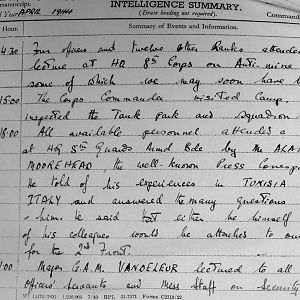 manuscript.
INTELLIGENCE SUMMARY.
d Year APRIL 1944
(Erase heading not required).
Hour.
Summary of Events and Information.
4.30 Four officers and twelve Other Ranks attended
lecture at HQ 8th Corps on Anti-mine
some of which we may soon have
15.00 The Corps Commander visited Camp,
inspected the Tank park and Squadron
18.00 All available personnel attended a
at HQ 5th Guards Armd Bde by Mr ALAN
MOOREHEAD, the well-known Press Corresp
He told of his experiences in TUNISIA
ITALY and answered the many questions
him. He said that either he himself
of his colleagues would be attached to our
for the 2nd Front.
.00 Major G.A.M. VANDELEUR lectured to all
Officers' servants and Mess Staff on Security